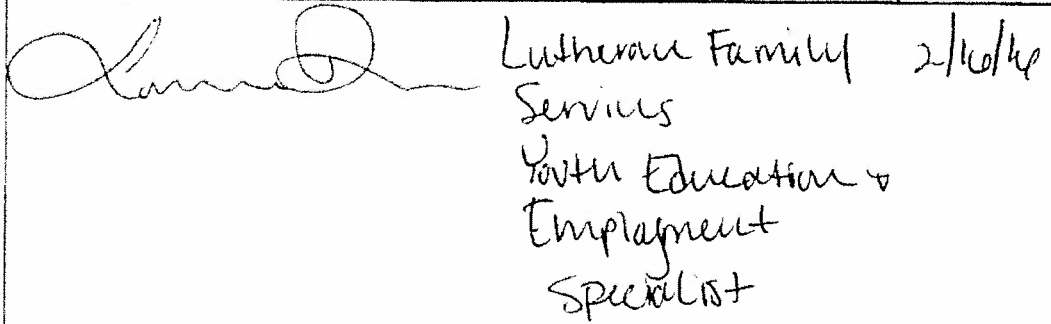 Lutheran Family 2/16/16
Services
Youth Education &
Employment
Specialist